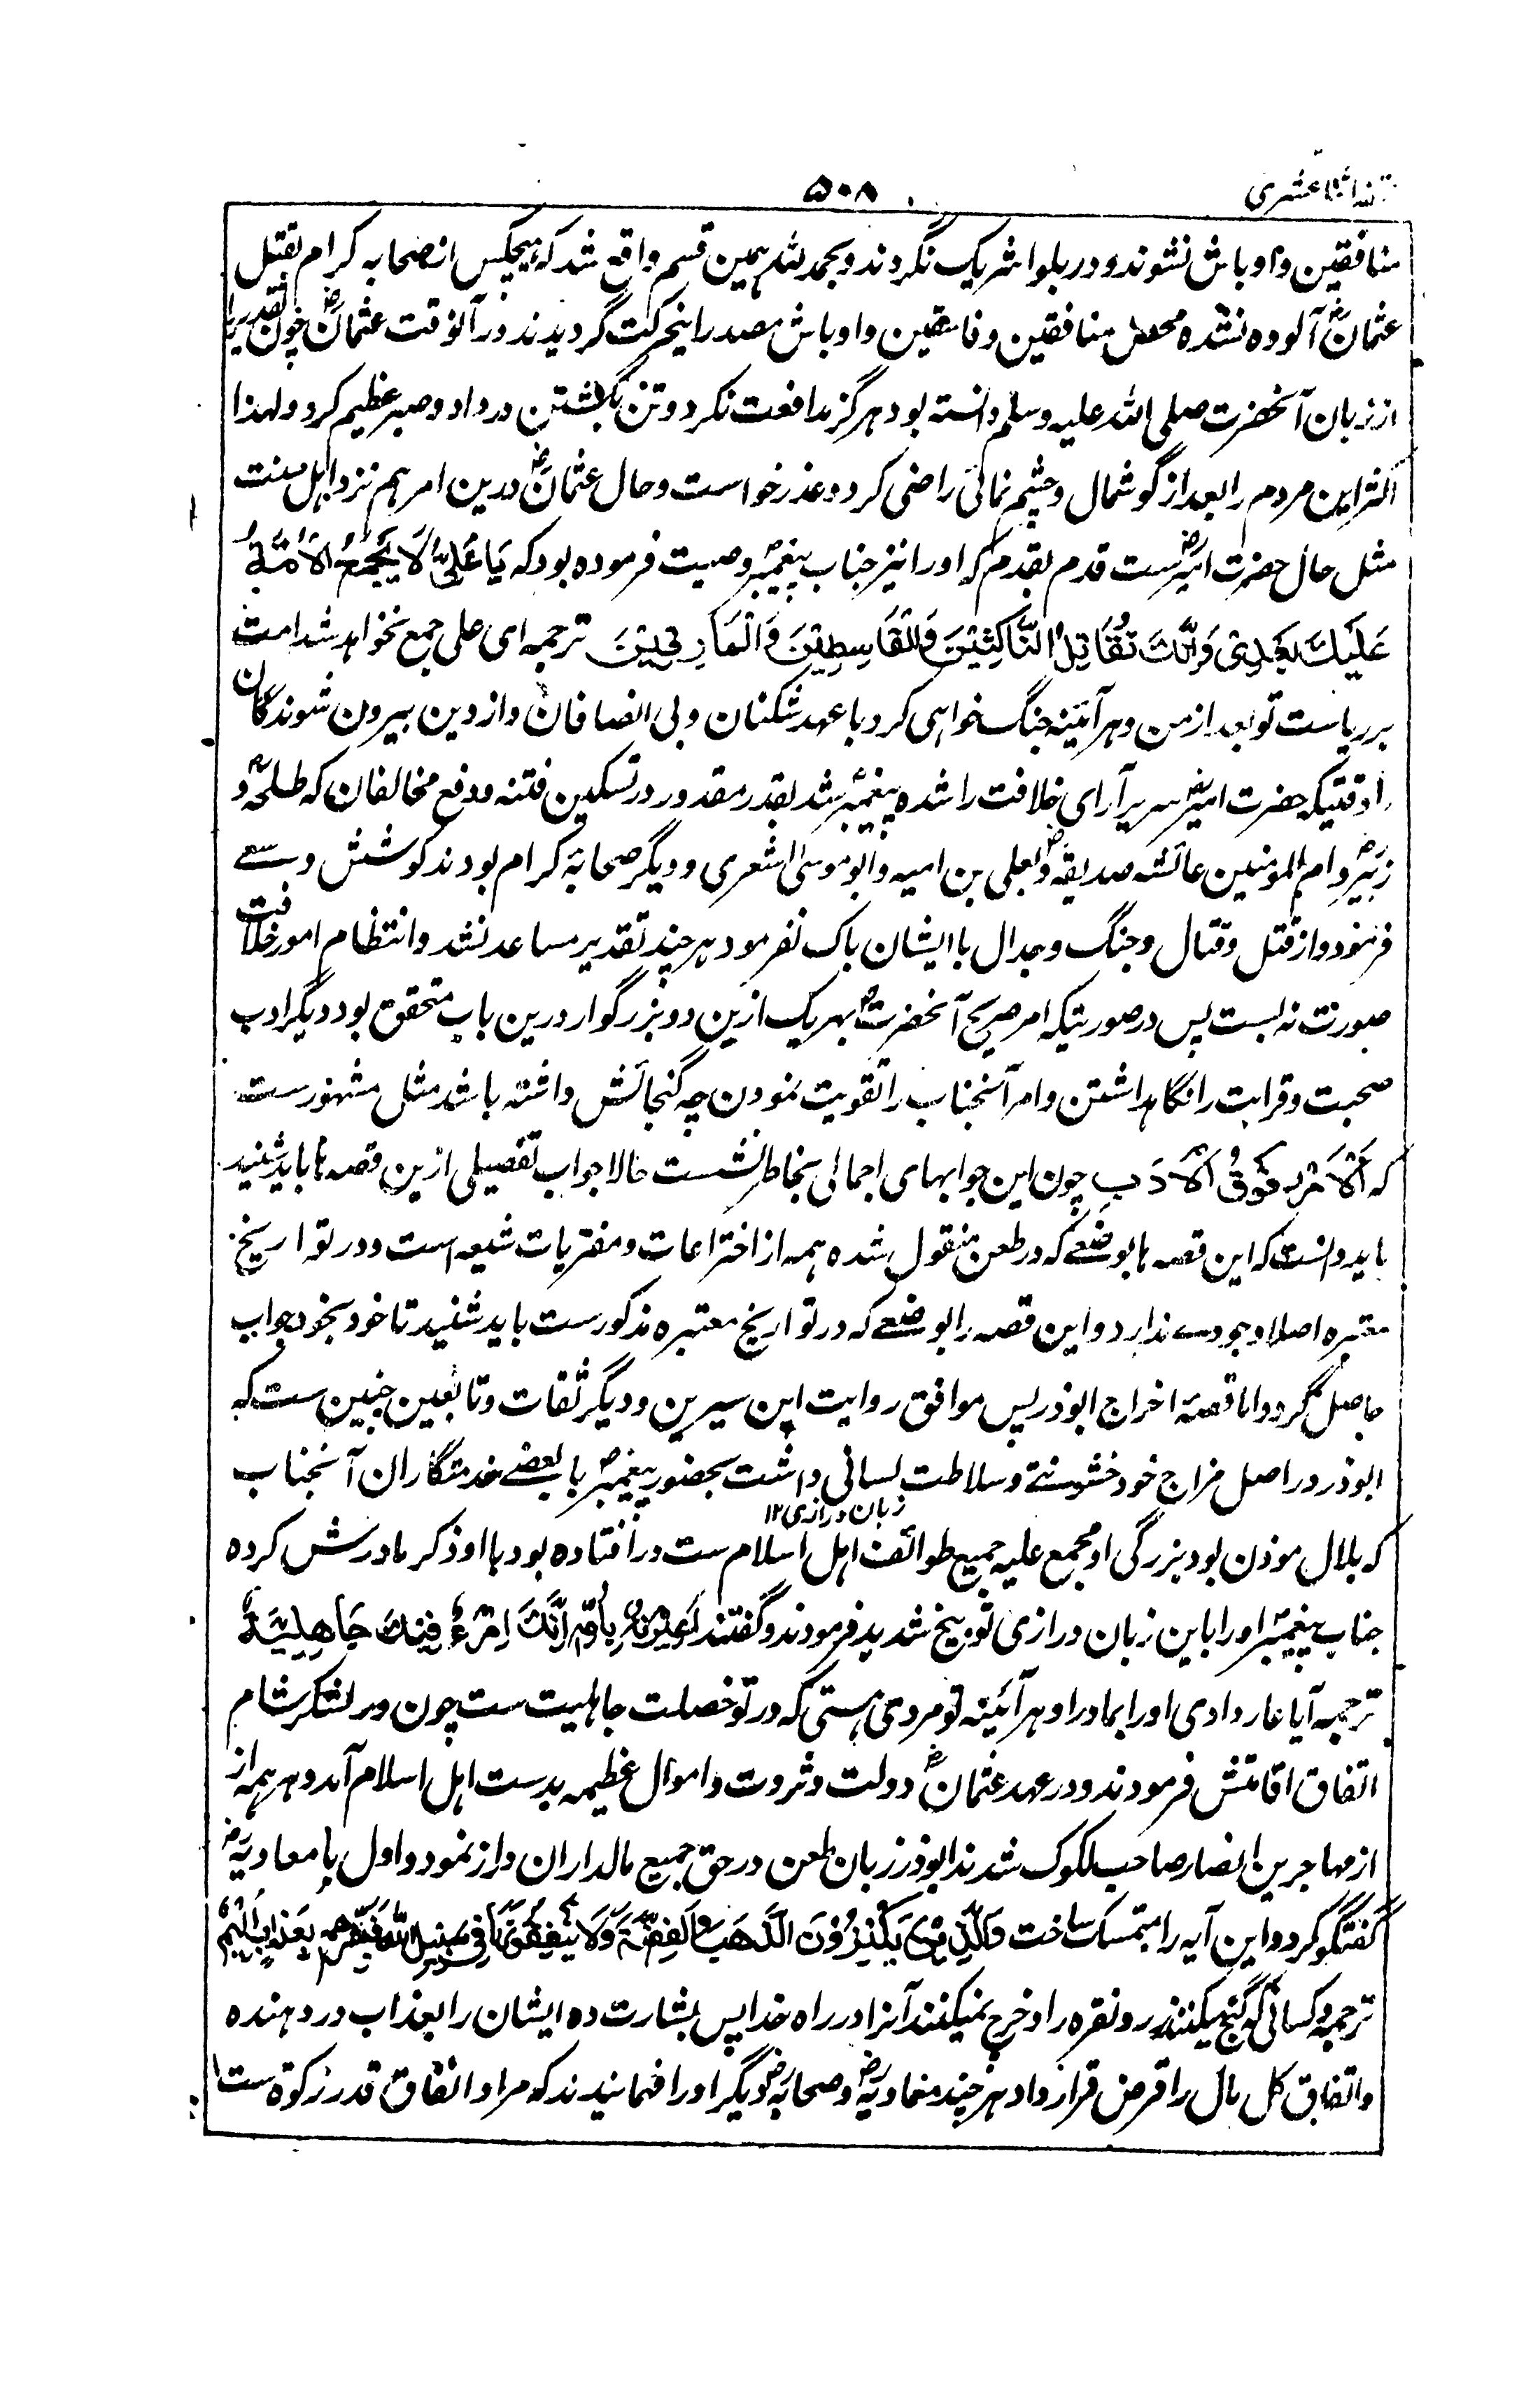 ۵۰۸
تحفه اثنا عشری
منافقین و اوباش نشوند و در بلوا شریک نگردند و بحمد لله همین قسم واقع شد که هیچکس از صحابه کرام بقتل
عثمانؓ آلوده نشده محض منافقین و فاسقین و اوباش مصدر اینحرکت گردیدند و در آنوقت عثمانؓ چون تقدیر را
از زبان آنحضرت صلی الله علیه وسلم دانسته بود هرگز مدافعت نکرد و تن بکشتن در داد و صبر عظیم کرد و لهذا
اکثر این مردم را بعد از گوشمال و چشم نمائی راضی کرد و عذر خواست و حال عثمانؓ درین امر هم نزد اهل سنت
مثل حال حضرت امیرؓ ست قدم بقدم که او را نیز جناب پیغمبرؐ وصیت فرموده بود که یَا عَلِیُّ لَا یَجْتَمِعُ الْاُمَّةُ
عَلَیْكَ بَعْدِیْ وَاِنَّكَ تُقَاتِلُ النَّاکِثِیْنَ وَالْقَاسِطِیْنَ وَالْمَارِقِیْنَ ترجمه ای علی جمع نخواهد شد امت
بر ریاست تو بعد از من و هر آئینه جنگ خواهی کرد با عهد شکنان و بی انصافان و از دین بیرون شوندگان
را وقتیکه حضرت امیرؓ سریر آرای خلافت راشده پیغمبرؐ شد بقدر مقدور در تسکین فتنه و دفع مخالفان که طلحهؓ و
زبیرؓ و ام المومنین عائشه صدیقهؓ و یعلی بن امیه و ابو موسی اشعری و دیگر صحابۀ کرام بودند کوشش و سعے
فرمود و از قتل و قتال و جنگ و جدال با ایشان باک نفرمود هر چند تقدیر مساعد نشد و انتظام امور خلافت
صورت نه بست پس در صورتیکه امر صریح آنحضرتؐ بهر یک ازین دو بزرگوار درین باب متحقق بود دیگر ادب
صحبت و قرابت را نگاه داشتن و امر آنجناب را تقویت نمودن چه گنجائش داشته باشد مثل مشهورست
که اَلْاَمْرُ فَوْقَ الْاَدَبِ چون این جوابهای اجمالی بخاطر نشست حالا جواب تفصیلی ازین قصه ها باید شنید
باید دانست که این قصه ها بوضعے که در طعن منقول شده همه از اختراعات و مفتریات شیعه است و در تواریخ
معتبره اصلا وجودے ندارد و این قصه را بوضعے که در تواریخ معتبره مذکورست باید شنید تا خود بخود جواب
حاصل گردد اما قصۀ اخراج ابوذر پس موافق روایت ابن سیرین و دیگر ثقات و تابعین چنین ست که
ابوذر در اصل مزاج خود خشونتے و سلاطت لسانی داشت بحضور پیغمبرؐ با بعضے خدمتگاران آنجناب
زبان درازی ۱۲
که بلال موذن بود بزرگی او مجمع علیه جمیع طوائف اهل اسلام ست در افتاده بود با او ذکر مادرش کرده
جناب پیغمبرؐ او را باین زبان درازی توبیخ شدید فرمودند و گفتند اَعَیَّرْتَهٗ بِاُمِّهٖ اِنَّكَ امْرَءٌ فِیْكَ جَاهِلِیَّةٌ
ترجمه آیا عار دادی او را بمادر او هر آئینه تو مردی هستی که در تو خصلت جاهلیت ست چون در لشکر شام
اتفاق اقامتش فرمودند و در عهد عثمانؓ دولت و ثروت و اموال عظیمه بدست اهل اسلام آمد و هر همه از
از مهاجرین انصار صاحب لکوک شدند ابوذر زبان طعن در حق جمیع مالداران دراز نمود و اول با معاویهؓ
گفتگو کرد و این آیه را متمسک ساخت وَالَّذِیْنَ یَکْنِزُوْنَ الذَّهَبَ وَالْفِضَّةَ وَلَا یُنْفِقُوْنَهَا فِیْ سَبِیْلِ اللّٰهِ فَبَشِّرْهُمْ بِعَذَابٍ اَلِیْمٍ
ترجمه و کسانی که گنج میکنند زر و نقره را و خرج نمیکنند آنرا در راه خدا پس بشارت ده ایشان را بعذاب درد دهنده
و انفاق کل مال را فرض قرار داد هر چند معاویهؓ و صحابهؓ دیگر او را فهمانیدند که مراد انفاق قدر زکوة ست